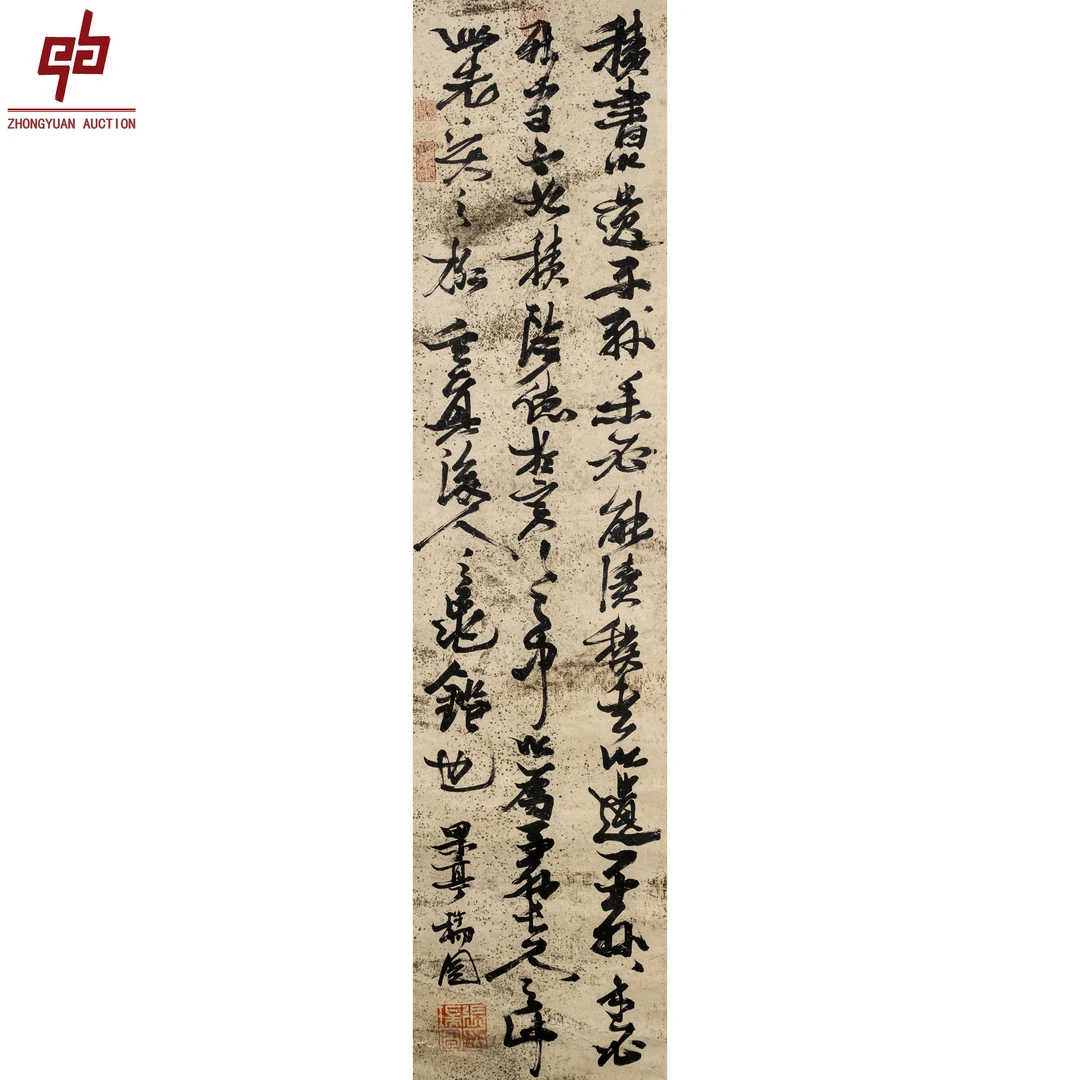 ZHONGYUAN AUCTION
積書以遺子孫未必能讀積金以遺子孫未必
能守不如積陰德於冥冥之中以為子孫長久之計
此先賢之格言真後人之龜鑑也 果亭瑞圖